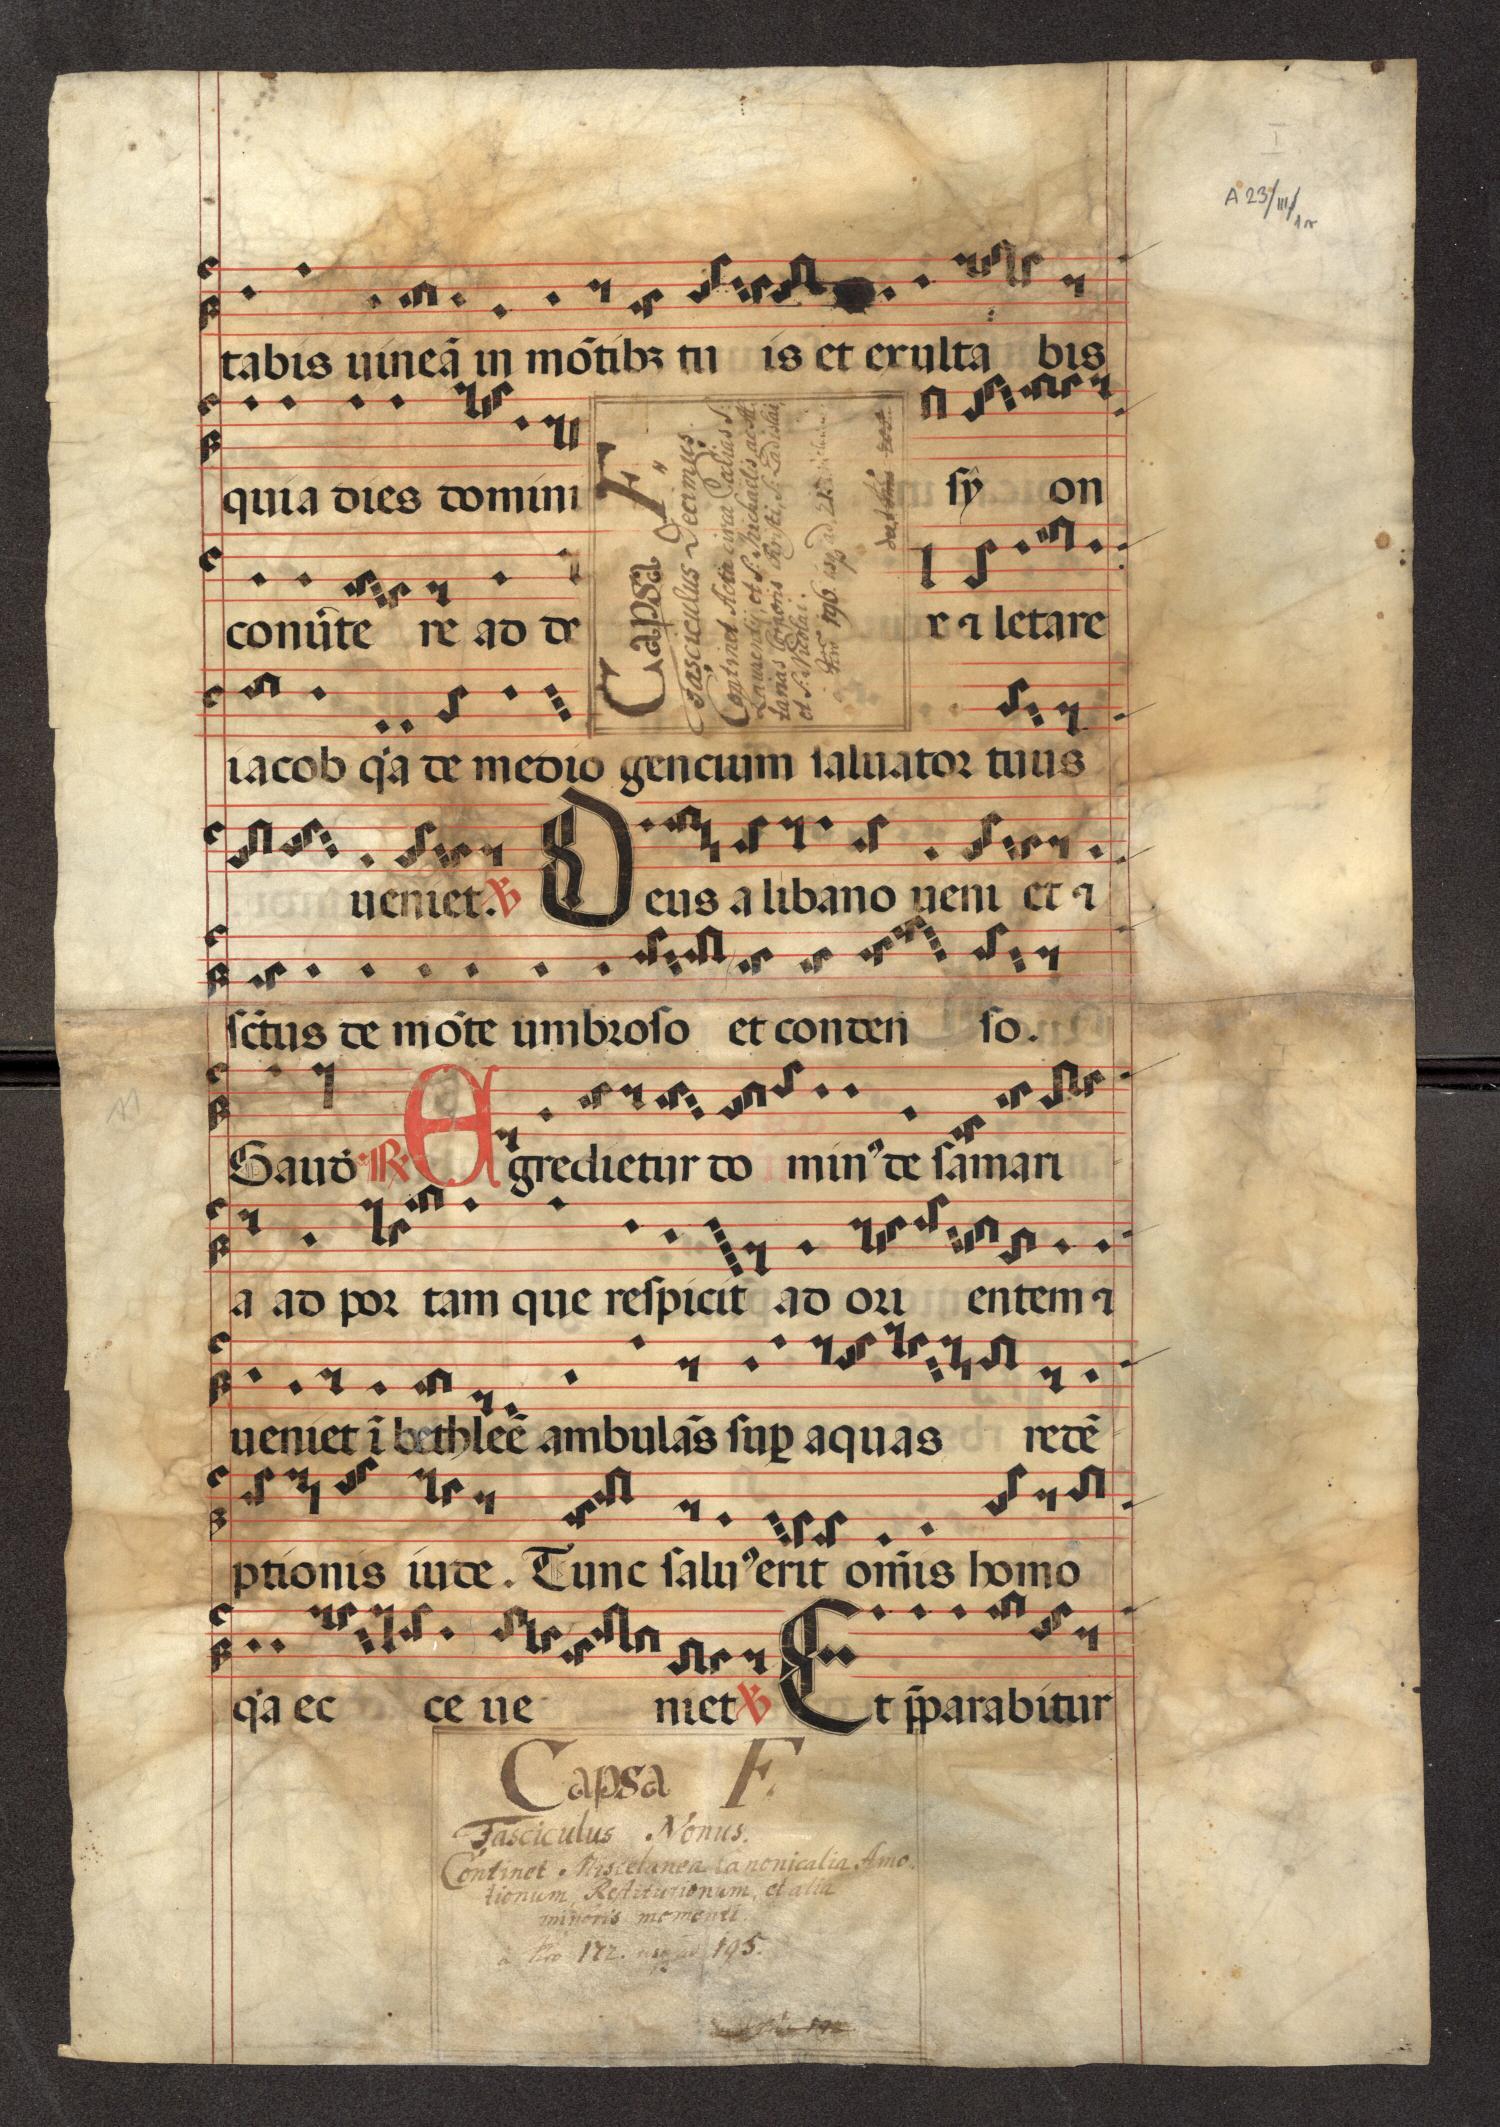 A 23/III/1r
tabis uineā in mōtibꝫ tu is et exulta bis
quia dies domini sy on
conũte re ad de e ⁊ letare
iacob q'a de medio gencium saluator tuus
ueniet. ℣ Deus a libano ueni et ⁊
sc̄tus de mōte umbroso et conden so.
Gaud ℟ Egredietur do min⁹ de samari
a ad por tam que respicit ad ori entem ⁊
ueniet ī bethleē ambulās sup aquas redē
ptionis iude. Tunc salu⁹ erit om̄is homo
q'a ec ce ue niet ℣ Et p̄parabitur
Capsa F.
Fasciculus Decimus.
Continet Acta circa
Laurentii, et S. Michaelis ac
et S. Nicolai.
Capsa F.
Fasciculus Nonus.
Continet Miscelanea Canonicalia Amo-
tionum, Restitutionum, et alia
minoris momenti.
a Nro 172. usq ad 195.